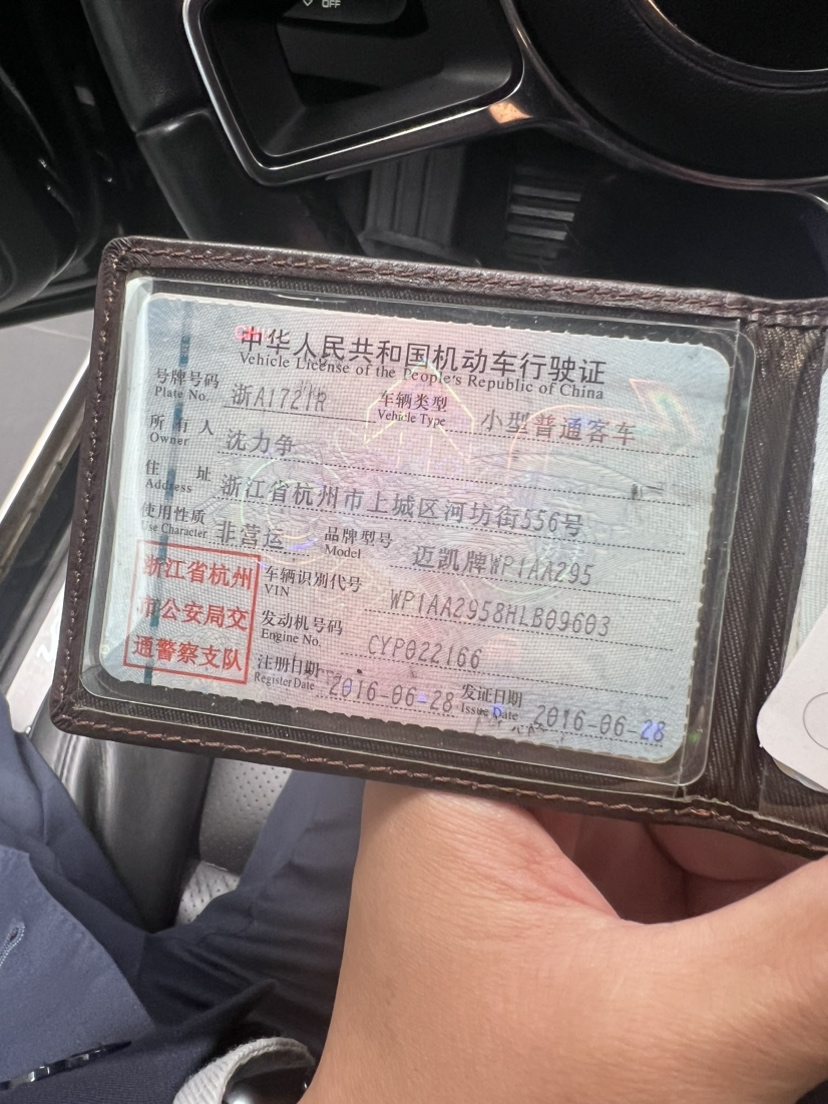 OFF
中华人民共和国机动车行驶证
Vehicle License of the People's Republic of China
号牌号码 浙A1721R 车辆类型 小型普通客车
Plate No. Vehicle Type
所有人 沈力争
Owner
住址 浙江省杭州市上城区河坊街556号
Address
使用性质 非营运 品牌型号 迈凯牌WP1AA295
Use Character Model
浙江省杭州
市公安局交
通警察支队
车辆识别代号 WP1AA2958HLB09603
VIN
发动机号码 CYP022166
Engine No.
注册日期 2016-06-28 发证日期 2016-06-28
Register Date Issue Date